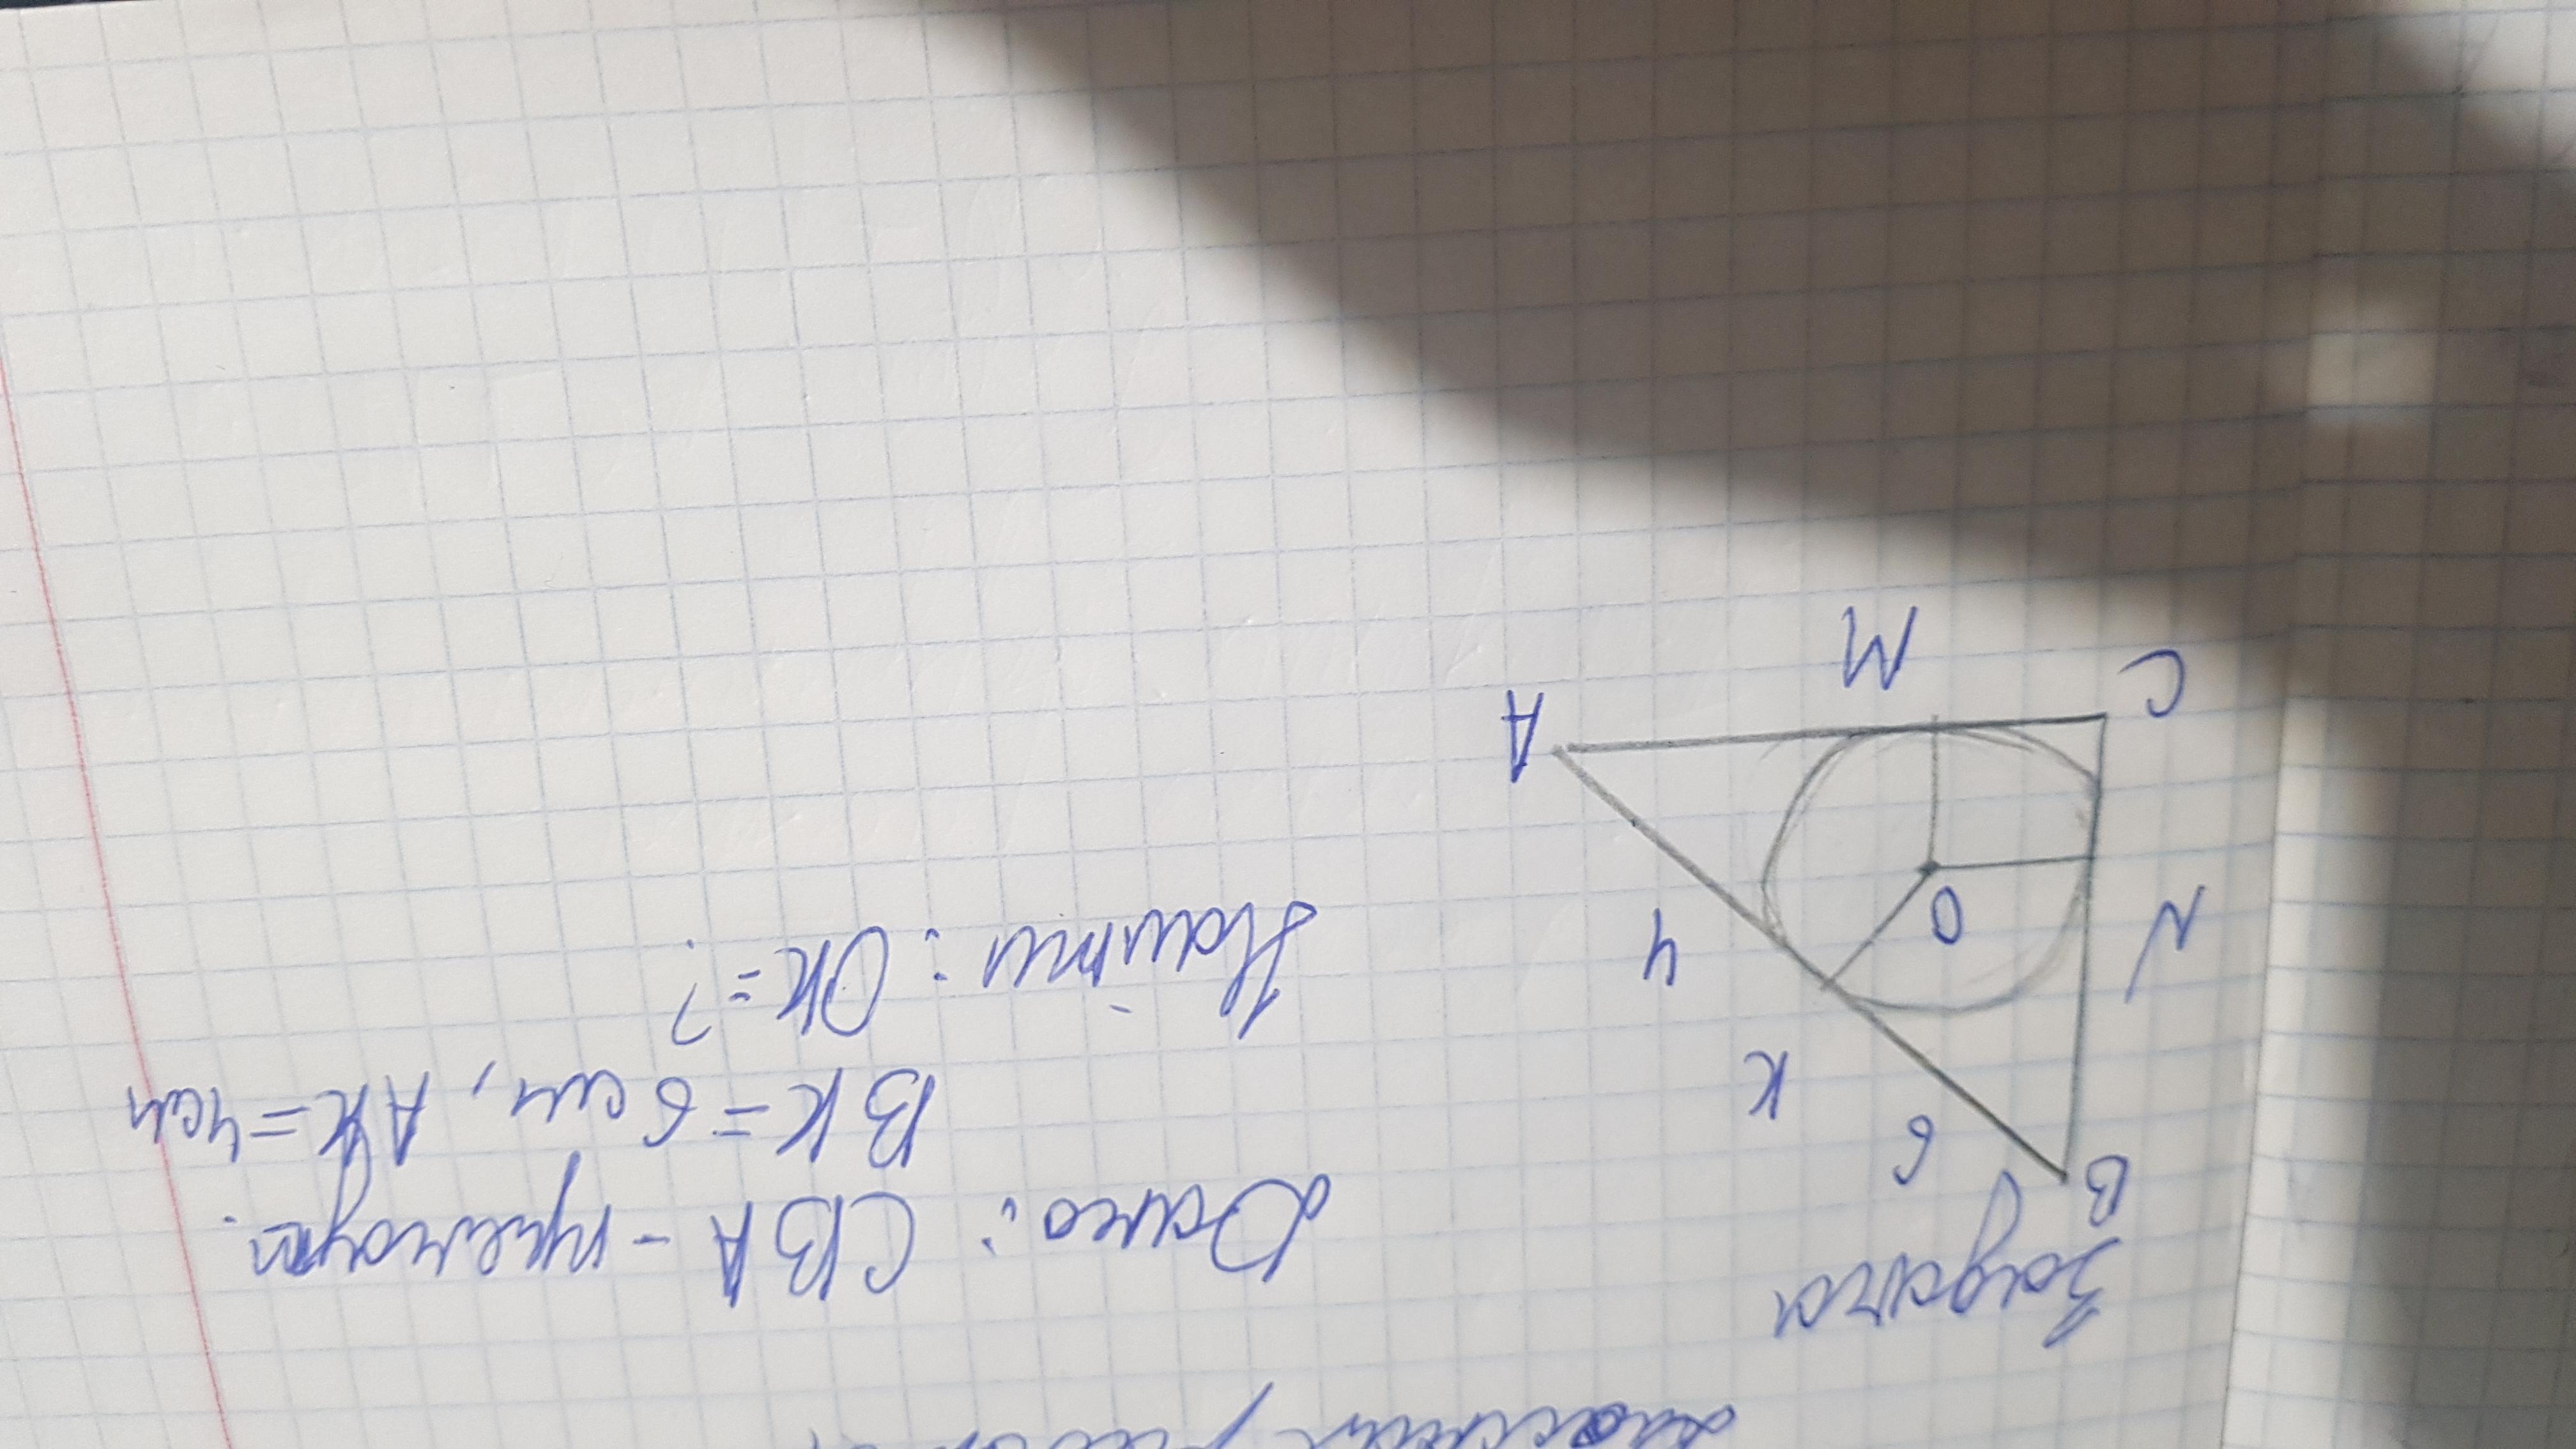 Задача
Дано: CBA - прямоуг.
BK = 6 см, AK = 4см
Найти: OK = ?
B
6
K
N
O
4
A
M
C